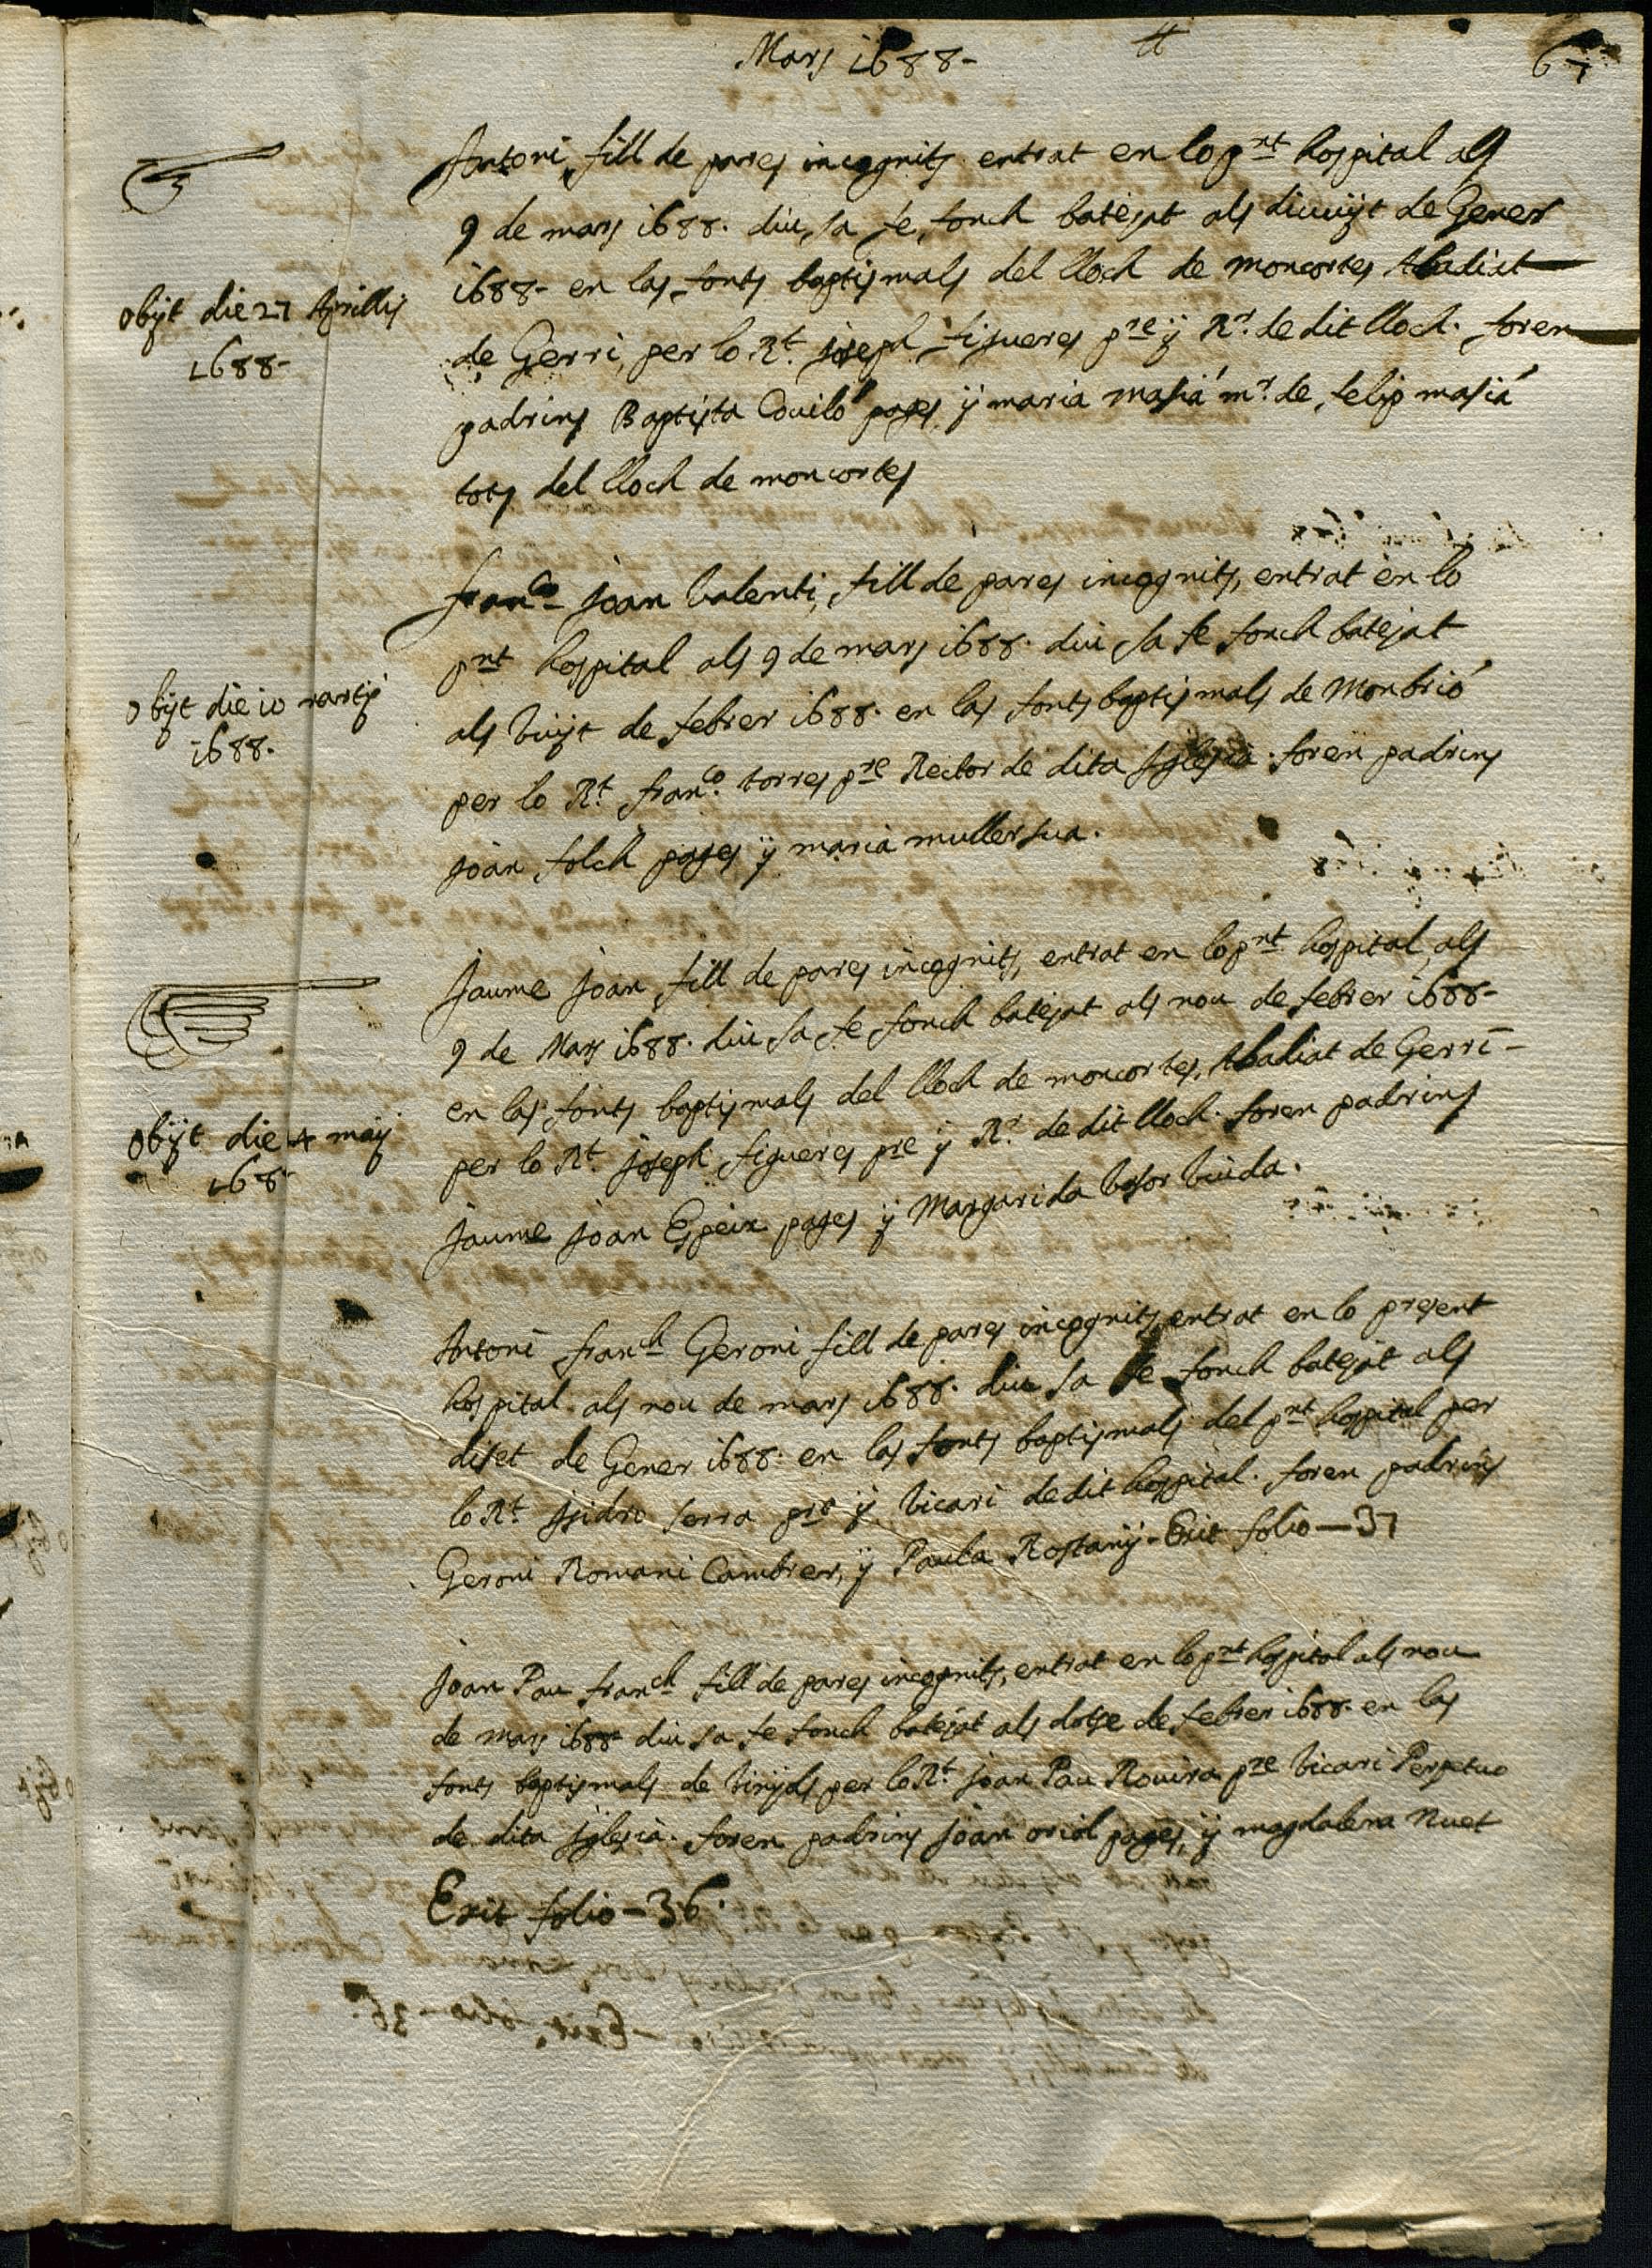 Mars 1688-
67
Antoni, fill de pares incognits entrat en lo pnt hospital als
9 de mars 1688. diu sa fe, fonch batejat als divuyt de Gener
1688- en las fonts baptismals del lloch de moncortes Abadiat
obijt die 27 Aprillis
1688-
de Gerri, per lo Rt. Joseph figueres pre ÿ Rr. de dit lloch. foren
padrins Baptista Coviló pages, ÿ maria masiá mr. de felip masiá
tots del lloch de moncortes
Franco Joan Valenti, fill de pares incognits, entrat en lo
pnt hospital als 9 de mars 1688. diu sa fe fonch batejat
obijt die 10 martij
1688.
als Vuyt de febrer 1688. en las fonts baptismals de Monbrió
per lo Rt. franco. torres pre Rector de dita Iglesia. foren padrins
Joan folch pages ÿ maria muller sua.
Jaume Joan fill de pares incognits, entrat en lo pnt hospital als
9 de Mars 1688. diu sa fe fonch batejat als nou de febrer 1688-
en las fonts baptismals del lloch de moncortes, Abadiat de Gerri-
obijt die 4 maij
168-
per lo Rt. Joseph figueres pre ÿ Rr. de dit lloch. foren padrins
Jaume Joan Espeix pages ÿ Margarida Viuda.
Antoni franch Geroni fill de pares incognits, entrat en lo present
hospital als nou de mars 1688. diu sa fe fonch batejat als
diset de Gener 1688. en las fonts baptismals del pnt hospital per
lo Rt. Isidro Serra pre ÿ Vicari de dit hospital. foren padrins
Geroni Romani Cambrer, ÿ Paula Rostanÿ- Exit folio-37
Joan Pau franch fill de pares incognits, entrat en lo pnt hospital als nou
de mars 1688 diu sa fe fonch batejat als dotse de febrer 1688. en las
fonts baptismals de per lo Rt. Joan Pau Rovira pre Vicari Perpetuo
de dita Iglesia. foren padrins Joan oriol pages, ÿ magdalena Nuet
Exit folio-36.